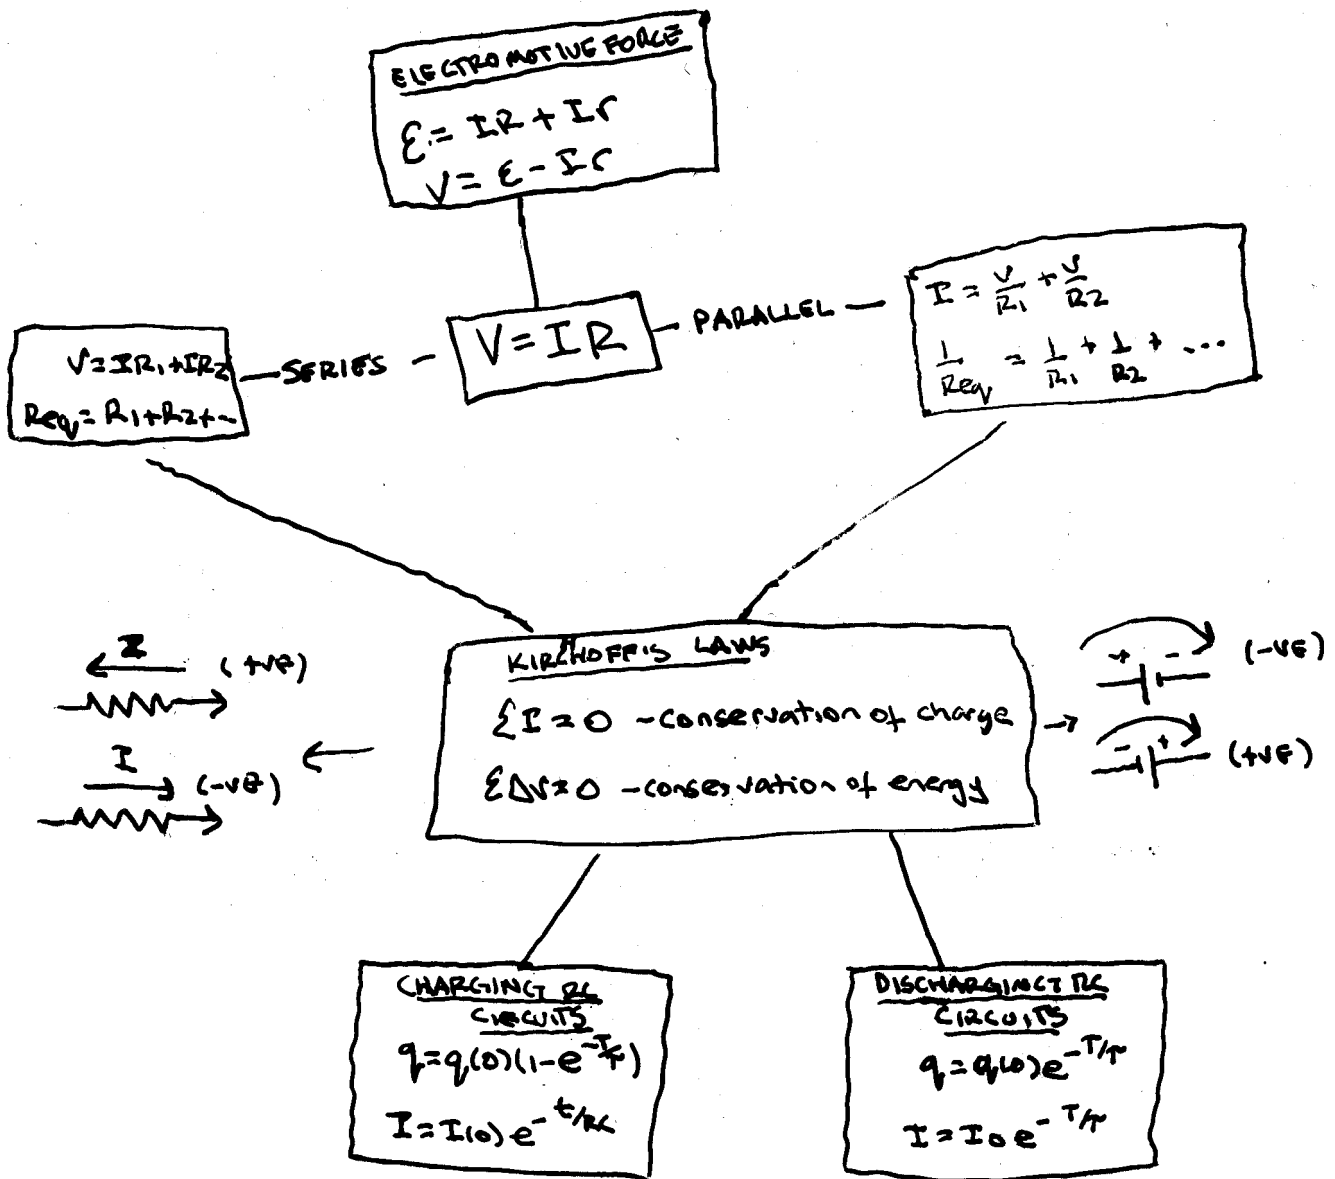 ELECTROMOTIVE FORCE
ε = IR + Ir
V = ε - Ir
V = IR
SERIES
PARALLEL
V = IR1 + IR2
Req = R1 + R2 + ...
I = V/R1 + V/R2
1/Req = 1/R1 + 1/R2 + ...
KIRCHOFF'S LAWS
ΣI = 0 - conservation of charge
ΣΔV = 0 - conservation of energy
I (+VE)
I (-VE)
+ - (-VE)
- + (+VE)
CHARGING RC
CIRCUITS
q = q(0)(1 - e^-T/τ)
I = I(0) e^-t/RC
DISCHARGING RC
CIRCUITS
q = q(0) e^-T/τ
I = I0 e^-T/τ